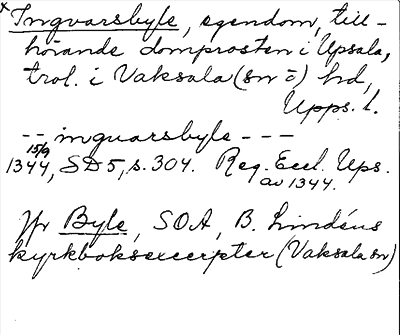 × Ingvarsbyle, egendom, till-
hörande domprosten i Upsala,
trol. i Vaksala (sn =) hd,
Upps. l.
-- ingvarsbyle ---
15/9
1344, SD5, s. 304. Reg. Eccl. Ups.
av 1344.
Jfr Byle, SOA, B. Lindéns
kyrkboksexcerpter (Vaksala sn)